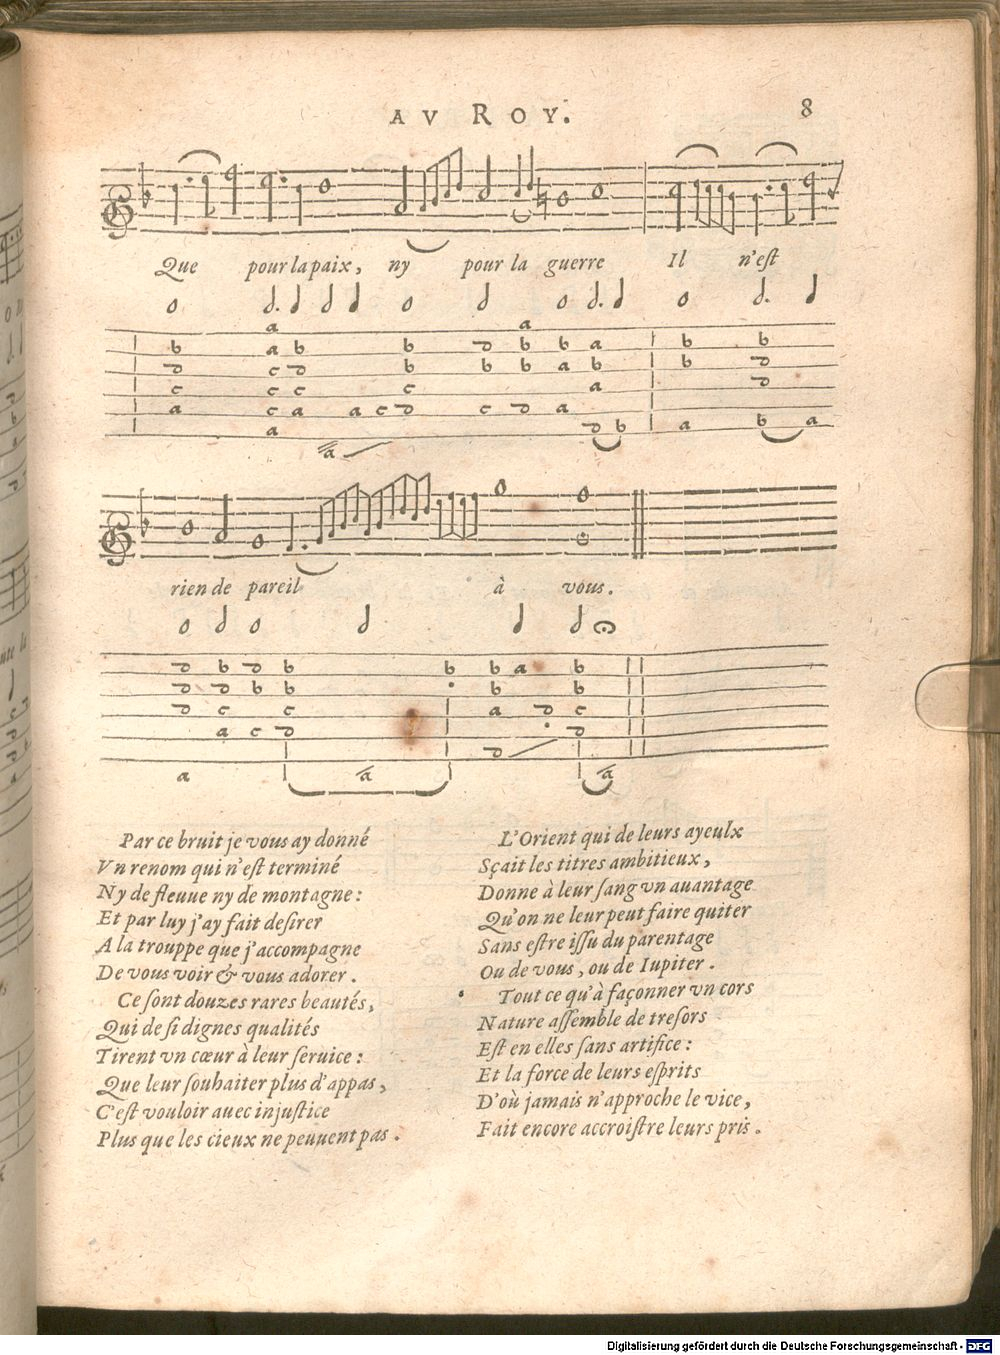 AV ROY. 8
Que pour la paix, ny pour la guerre Il n'eſt
rien de pareil à vous.
Par ce bruit je vous ay donné
Vn renom qui n'eſt terminé
Ny de fleuue ny de montagne:
Et par luy j'ay fait deſirer
A la trouppe que j'accompagne
De vous voir & vous adorer.
Ce ſont douzes rares beautés,
Qui de ſi dignes qualités
Tirent vn cœur à leur ſeruice:
Que leur ſouhaiter plus d'appas,
C'eſt vouloir auec injuſtice
Plus que les cieux ne peuuent pas.
L'Orient qui de leurs ayeulx
Sçait les titres ambitieux,
Donne à leur ſang vn auantage
Qu'on ne leur peut faire quiter
Sans eſtre iſſu du parentage
Ou de vous, ou de Iupiter.
Tout ce qu'à façonner vn cors
Nature aſſemble de treſors
Eſt en elles ſans artifice:
Et la force de leurs eſprits
D'où jamais n'approche le vice,
Fait encore accroiſtre leurs pris.
Digitalisierung gefördert durch die Deutsche Forschungsgemeinschaft - DFG